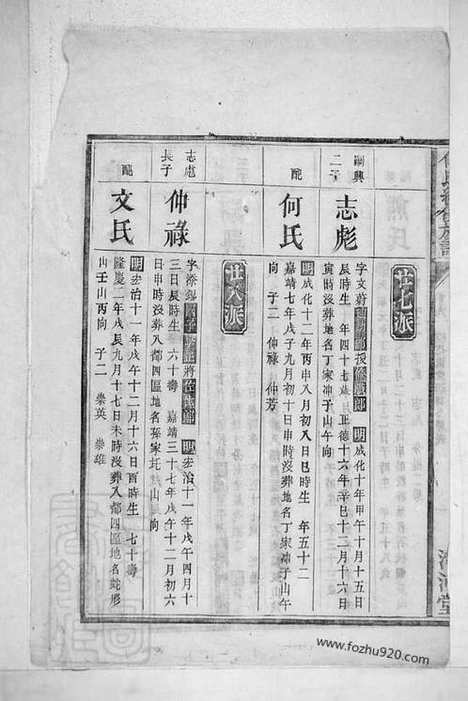 廿七派
嗣興
二子
志彪
字文蔚
明 成化十年甲午十月十五日
辰時生 年四十七歲 正德十六年辛巳十二月十六日
寅時沒葬地名丁家冲子山午向
配
何氏
明 成化十二年丙申八月初八日巳時生 年五十二
嘉靖七年戊子九月初十日申時沒葬地名丁家冲子山午
向 子二 仲祿 仲芳
廿八派
志彪
長子
仲祿
明 宏治十一年戊午四月十
三日辰時生 六十壽 嘉靖三十七年戊午十二月初六
日申時沒葬八都四區地名孫家圫 山 向
配
文氏
明 宏治十一年戊午十二月十六日酉時生 七十壽
隆慶二年戊辰九月十七日未時沒葬八都四區地名蛇形
山壬山丙向 子二 崇英 崇雄
www.fozhu920.com